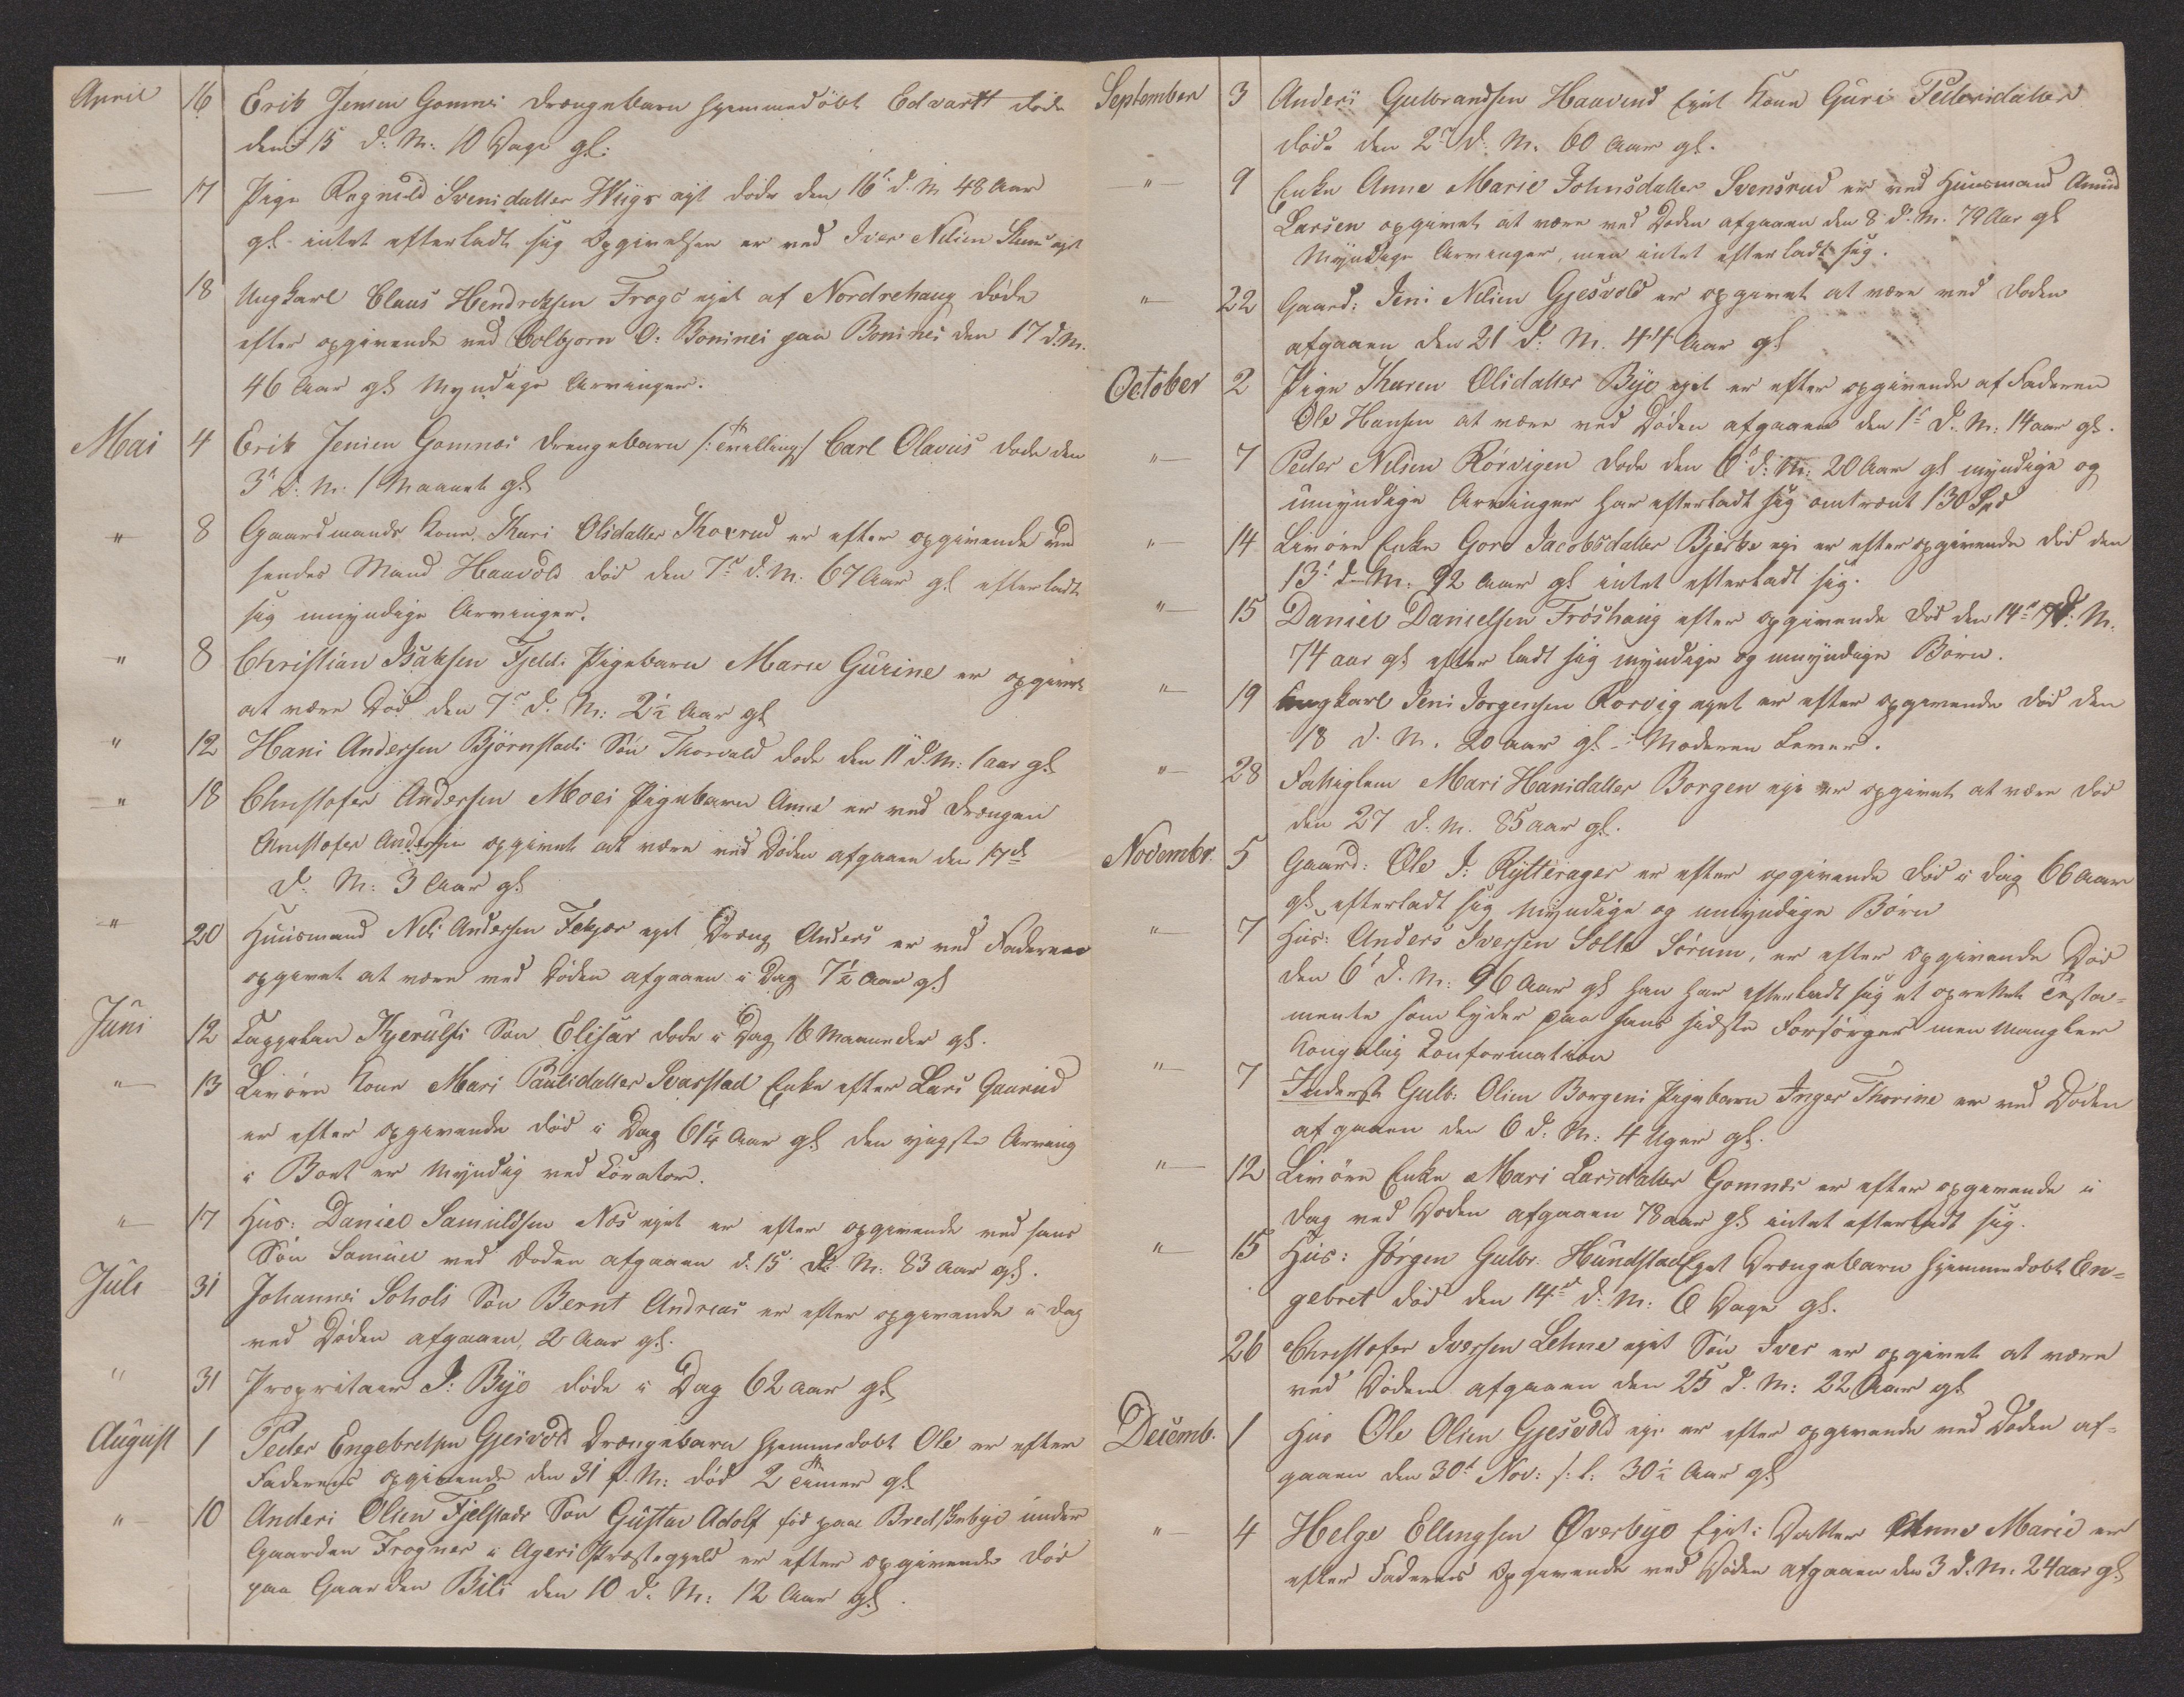 April 16 Erik Jensen Gomnes Drængebarn hjemmedöbt Edvartt döde
den 15 d: M: 10 Dage gl:
— 17 Pige Ragnild Svensdatter Wiigs ejt döde den 16' d. M 48 Aar
gl. intet efterladt sig Opgivelsen er ved Iver Nilsen ejt
18 Ungkarl Claus Hendrichsen Frogs ejet af Nordrehaug döde
efter opgivende ved Colbjorn O: Bonsnes paa Bonsnes den 17 d. M.
46 Aar gl Myndige Arvinger.
Mai 4 Erik Jensen Gomnes Drengebarn /: Tvilling :/ Carl Olavus döde den
3' d: M: 1 Maanet gl
" 8 Gaardmands Kone Kari Olsdatter Koxrud er efter opgivende ved
hendes Mand Haavold död den 7' d. M. 67 Aar gl efterladt
sig umyndige Arvinger.
" 8 Christian Isaksen Fjelds Pigebarn Maren Gurine er opgivet
at være Död den 7' d. M: 2½ Aar gl
" 12 Hans Andersen Björnstads Sön Thorvald döde den 11 d. M: 1 aar gl
" 18 Christofer Andersen Moes Pigebarn Anne er ved Drængen
Christofer Andersen opgivet at være ved Döden afgaaen den 17de
d. M: 3 Aar gl
" 20 Huusmand Nils Andersen Fekjær ejet Dreng Anders er ved Faderen
opgivet at være ved Döden afgaaen i Dag 7½ Aar gl
Juni 12 Cappelan Kjerulfs Sön Elisar döde i Dag 16 Maaneder gl.
" 13 Livöre Kone Mari Paulsdatter Svarstad Enke efter Lars Gaarud
er efter opgivende död i Dag 61¼ Aar gl den yngste Arving
i Boet er Myndig ved Curator.
" 17 Hus: Daniel Samuldsen Nös ejet er efter opgivende ved hans
Sön Samuel ved Döden afgaaen d. 15 d. M. 83 Aar gl.
Juli 31 Johannes Sohols Sön Bernt Andreas er efter opgivende i Dag
ved Döden afgaaen, 2 Aar gl.
" 31 Propritair J: Bye döde i Dag 62 Aar gl
August 1 Peder Engebretsen Gjesvold Drængebarn hjemmedöbt Ole er efter
Faderens opgivende den 31 f. M: död 2 Timer gl
" 10 Anders Olsen Fjelstads Sön Gustav Adolf föd paa Bredskebye under
Gaarden Frogner i Agers Præstegjeld er efter opgivende död
paa Gaarden Bili den 10 d. M: 12 Aar gl.
September 3 Anders Gulbrandsen Haavind Ejet Kone Guri Pedersdatter
döde den 2 d. M. 60 Aar gl.
" 9 Enke Anne Marie Johnsdatter Svensrud er ved Huusmand Amund
Larsen opgivet at være ved Döden afgaaen den 8 d. M. 79 Aar gl
Myndige Arvinger, men intet efterladt sig.
" 22 Gaard: Jens Nilsen Gjesvold er opgivet at være ved Döden
afgaaen den 21 d. M. 44 Aar gl
October 2 Pige Karen Olsdatter Bye ejet er efter opgivende af Faderen
Ole Hansen at være ved Döden afgaaen den 1' d. M: 14 aar gl.
" 7 Peder Nilsen Rörvigen döde den 6' d: M: 20 Aar gl myndige og
umyndige Arvinger har efterladt sig omtrænt 130 Spd
" 14 Livöre Enke Goro Jacobsdatter Bjerke eje er efter opgivende död den
13' d. M: 92 Aar gl intet efterladt sig.
" 15 Daniel Danielsen Fröshaug efter opgivende död den 14' d. M.
74 aar gl efterladt sig myndige og umyndige Börn.
" 19 Ungkarl Jens Jorgensen Rorvig ejet er efter opgivende död den
18 d. M. 20 aar gl - Moderen Lever.
" 28 Fattiglem Mari Hansdatter Borgen eje er opgivet at være död
den 27 d. M. 85 aar gl.
Novembr. 5 Gaard: Ole J: Rytterager er efter opgivende död i dag 66 Aar
gl. efterladt sig myndige og umyndige Börn
" 7 Hus: Anders Iversen Solte Sörum, er efter opgivende Död
den 6' d. M: 96 Aar gl han har efterladt sig et oprettet Testa=
mente som lyder paa hans sidste Forsörger men mangler
Kongelig Confermation
" 7 Inderst Gulb: Olsen Borgens Pigebarn Inger Thorine er ved Döden
afgaaen den 6 d. M: 4 Uger gl.
" 12 Livöre Enke Mari Larsdatter Gomnes er efter opgivende i
Dag ved Döden afgaaen 78 aar gl intet efterladt sig.
" 15 Hus: Jörgen Gulbr. Hundstad Ejet Drængebarn hjemmedöbt En=
gebret död den 14de d. M: 6 Dage gl.
26 Christofer Iversen Lehne ejet Sön Iver er opgivet at være
ved Döden afgaaen den 25 d. M: 22 Aar gl
Decemb. 1 Hus Ole Olsen Gjesvold eje er efter opgivende ved Döden af=
gaaen den 30' Nov: s: l: 30½ Aar gl
" 4 Helge Ellingsen Øverbye Ejet: Datter Anne Marie er
efter Faderens Opgivende ved Döden afgaaen den 3 d. M. 24 aar gl